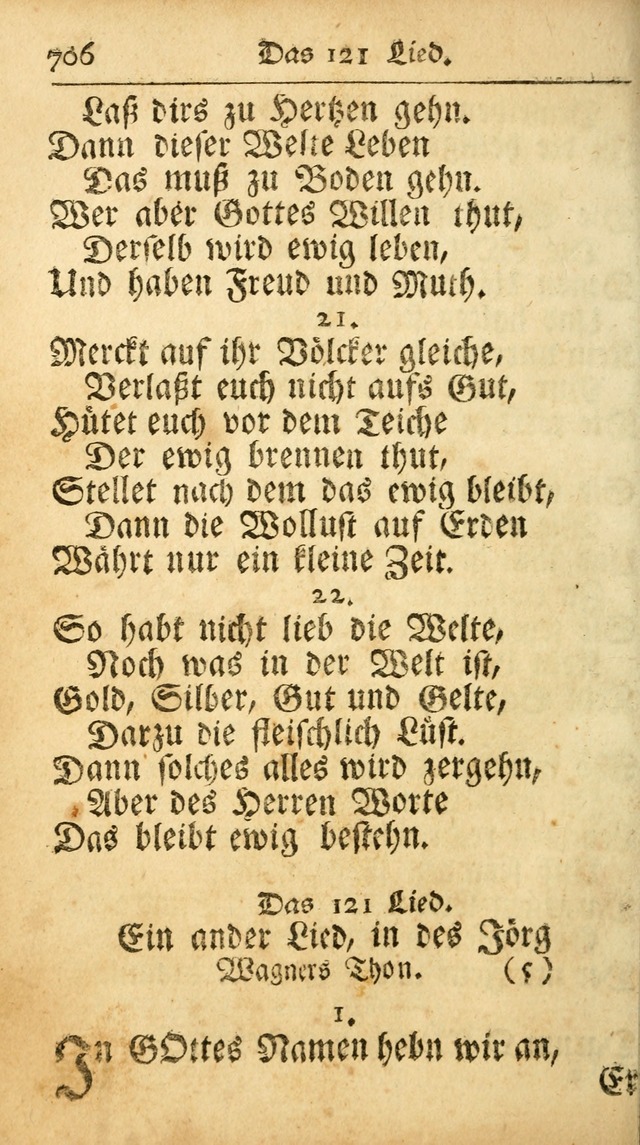 706 Das 121 Lied.
Laß dirs zu Hertzen gehn.
Dann dieser Welte Leben
Das muß zu Boden gehn.
Wer aber Gottes Willen thut,
Derselb wird ewig leben,
Und haben Freud und Muth.
21.
Merckt auf ihr Völcker gleiche,
Verlaßt euch nicht aufs Gut,
Hütet euch vor dem Teiche
Der ewig brennen thut,
Stellet nach dem das ewig bleibt,
Dann die Wollust auf Erden
Währt nur ein kleine Zeit.
22.
So habt nicht lieb die Welte,
Noch was in der Welt ist,
Gold, Silber, Gut und Gelte,
Darzu die fleischlich Lüst.
Dann solches alles wird zergehn,
Aber des Herren Worte
Das bleibt ewig bestehn.
Das 121 Lied.
Ein ander Lied, in des Jörg
Wagners Thon. (5)
1.
In GOttes Namen hebn wir an,
Er